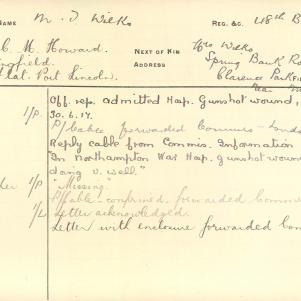 NAME M. J. Wilks REG. &C. 48th B
C. M. Howard. NEXT OF KIN Wilks
ingfield. ADDRESS Spring Bank Ro
at. Port Lincoln. Clarence Park
1/P Off. rep. admitted Hosp. Gunshot wound,
30.6.17.
P/Cable forwarded Commis - London
Reply cable from Commis. Information
In Northampton War Hosp. gunshot wound
doing v. well."
1/P "Missing."
P/Cable - confirmed, forwarded Commis
1/L Letter acknowledged.
Letter with enclosure forwarded Com